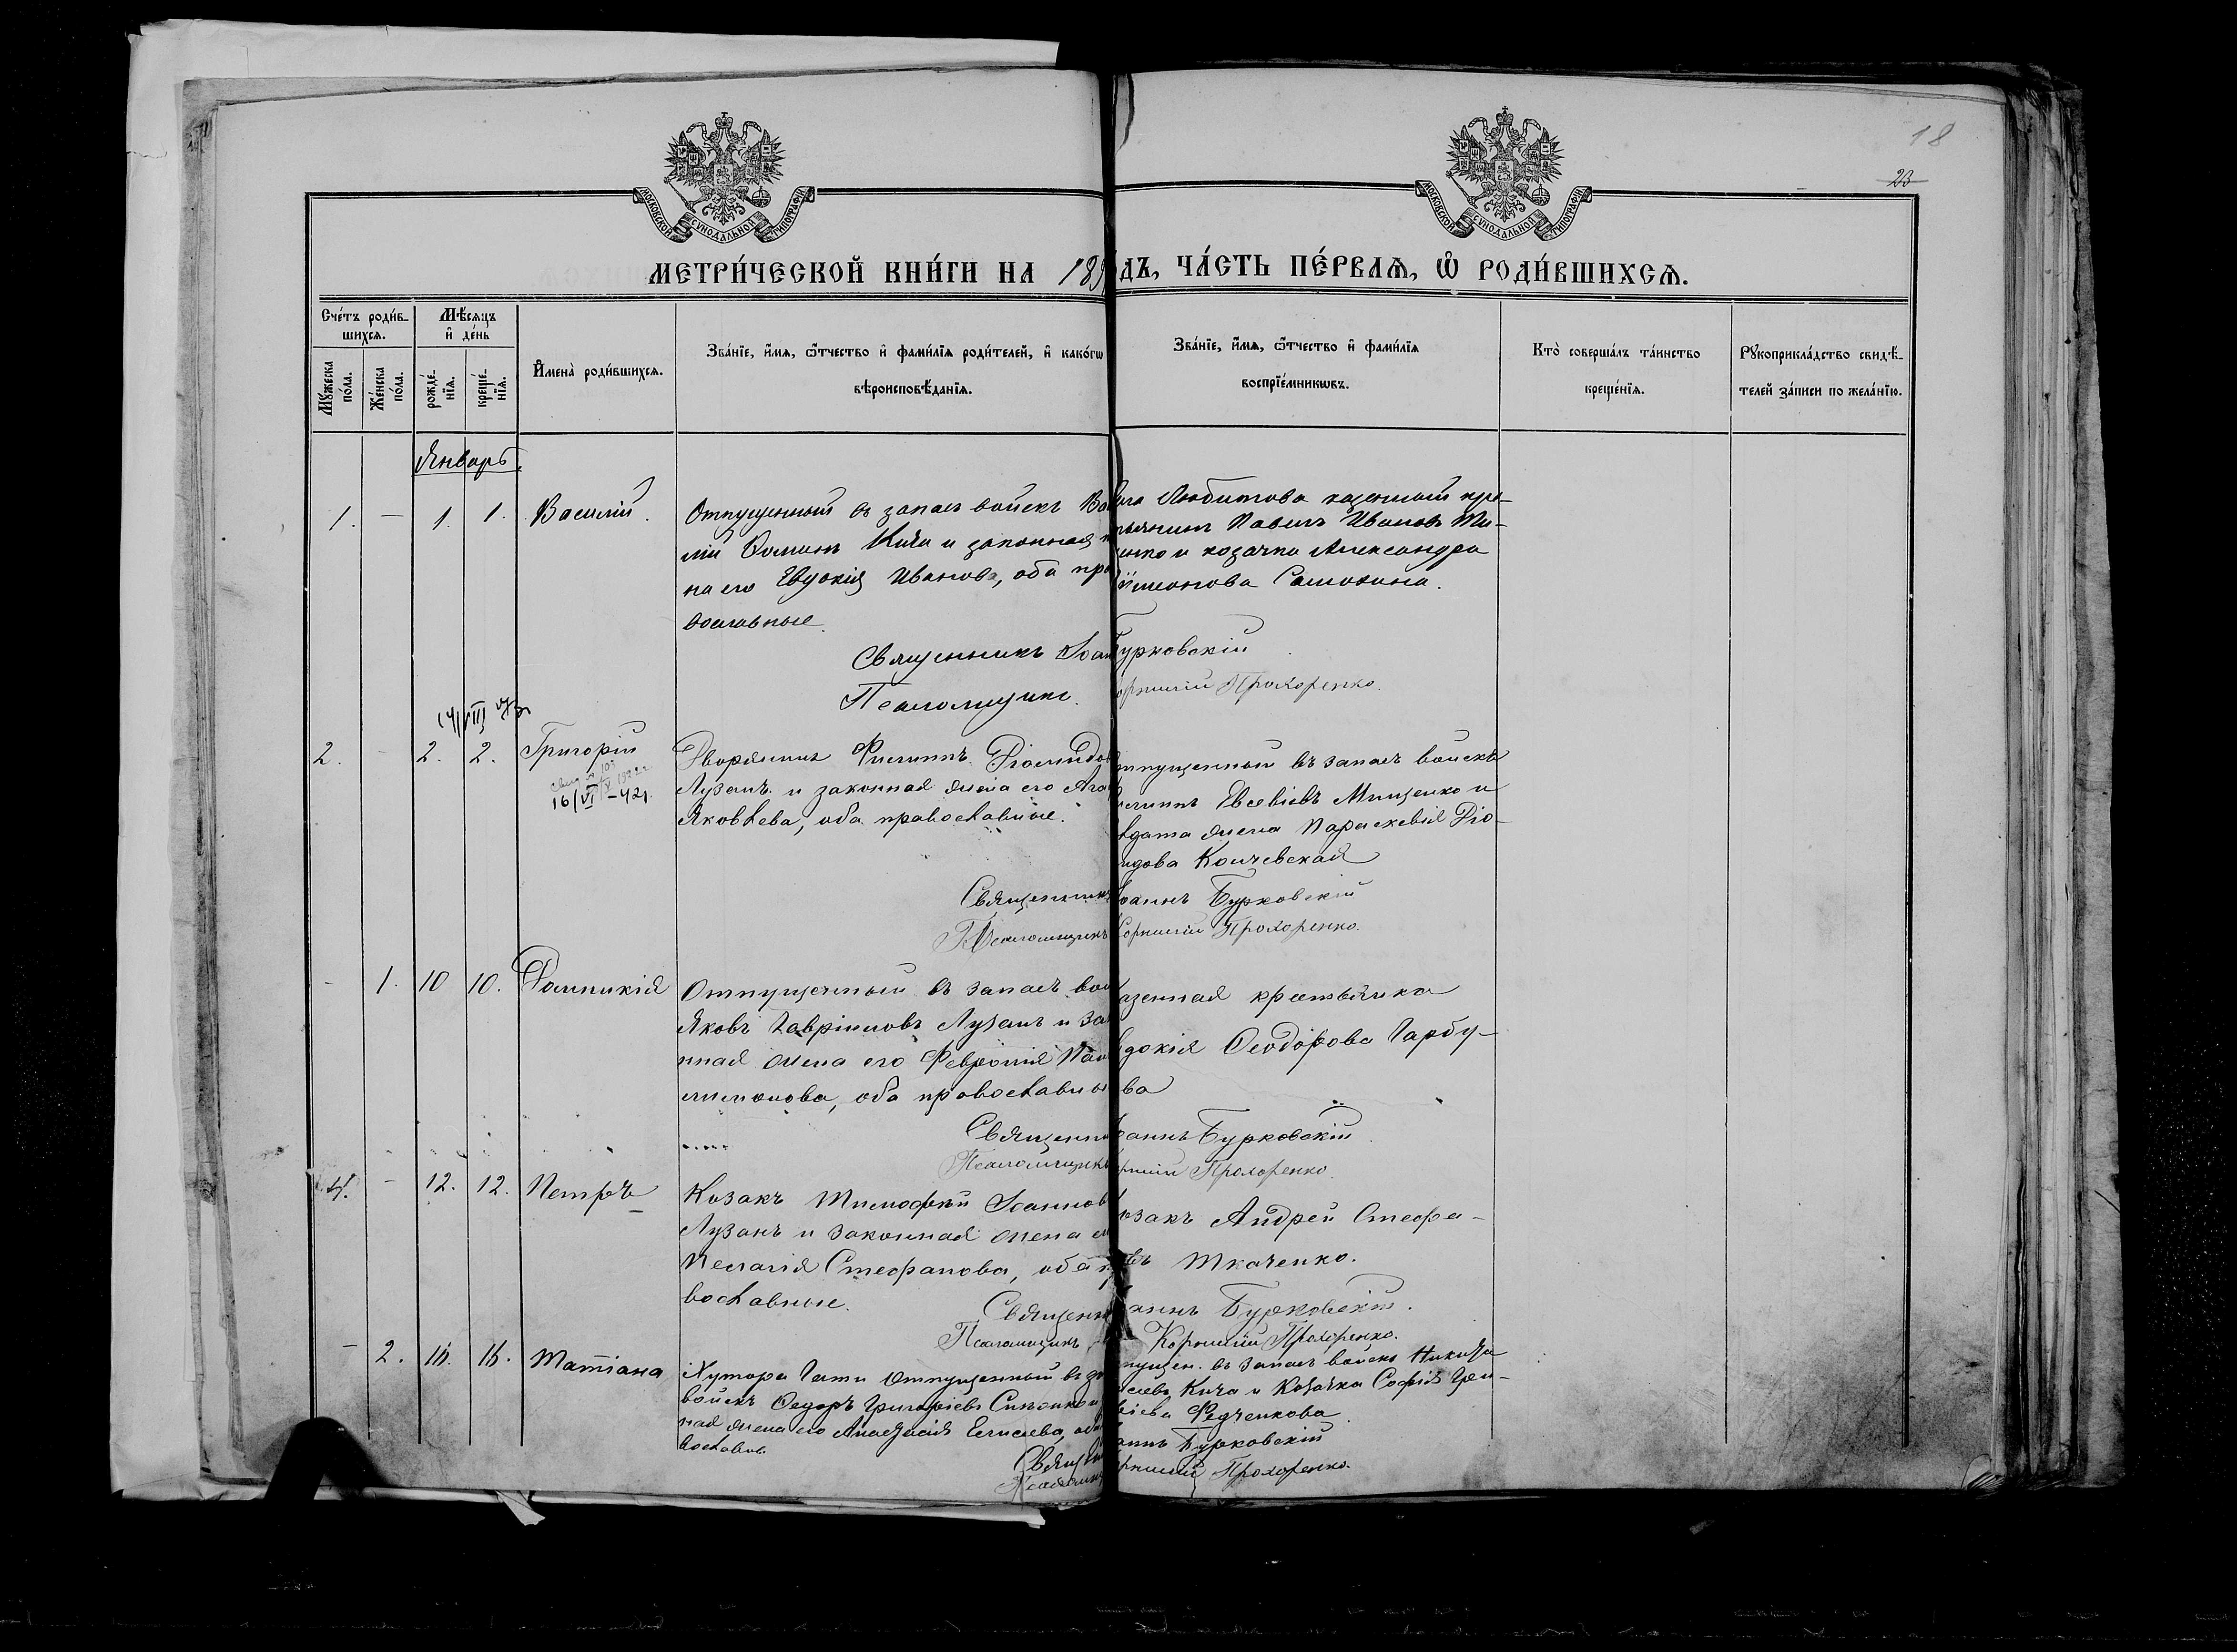 18
23
МОСКОВСКОЙ СѴНОДАЛЬНОЙ ТИПОГРАФІИ
МОСКОВСКОЙ СѴНОДАЛЬНОЙ ТИПОГРАФІИ
МЕТРИ́ЧЕСКОЙ КНИ́ГИ НА 189
ДЪ, ЧА́СТЬ ПЕ́РВАѦ, Ѽ РОДИ́ВШИХСѦ.
Сче́тъ роди́в-
шихсѧ.
Мѣ́сѧцъ
и҆ де́нь
Мꙋ́жеска
по́ла.
Же́нска
по́ла.
рожде́-
нїѧ.
креще́-
нїѧ.
И҆мена̀ роди́вшихсѧ.
Зва́нїе, и҆́мѧ, ѻ҆́тчество и҆ фами́лїѧ роди́телей, и҆ како́гѡ
вѣроисповѣ́данїѧ.
Зва́нїе, и҆́мѧ, ѻ҆́тчество и҆ фами́лїѧ
воспрїе́мникѡвъ.
Кто̀ соверша́лъ та́инство
креще́нїѧ.
Рꙋкоприкла́дство свидѣ́-
телей за́писи по жела́нїю.
Январь
1. — 1. 1. Василій.
Отпущенный въ запасъ войскъ Ва
лій Кича и законная
на его Евдокія Иванова, оба пра
вославные.
Любитова казенный кре-
Павелъ Ивановъ Ти-
енко и козачка Александра
Самохина.
Священникъ Іоан
Бурковскій
Псаломщикъ
Прохоренко.
2. - 2. 2. Григорій
16/VI -421.
Дворянинъ Филиппъ Діомидов
Лузанъ и законная жена его Ага
Яковлева, оба православные.
тпущенный въ запасъ войскъ
илиппъ Евсевіевъ Мищенко и
лдата жена Параскевія Діо-
идова Кончевская
Священникъ
Іоаннъ Бурковскій
Псаломщикъ
Корнилій Прохоренко.
- 1. 10 10. Домникія
Отпущенный въ запасъ вой
Яковъ Гавріиловъ Лузанъ и зак
нная жена его Февронія Пан
лимонова, оба православны
азенная крестьянка
вдокія Ѳеодорова Гарбу-
ва
Священни
Іоаннъ Бурковскій.
Псаломщикъ
Прохоренко
- 12. 12. Петръ
Козакъ Тимоѳей Іоаннов
Лузанъ и законная жена е
Пелагія Стефанова, оба п
вославные.
озакъ Андрей Стефа-
въ Ткаченко.
Священн
аннъ Бурковскій.
Псаломщикъ
Корнилій Прохоренко.
- 2. 16. 16. Татіана
Хутора Гати отпущенный въ за
войскъ Ѳедоръ Григоріевъ
ная жена его Анастасія Елисеева, оба
вославн.
пущен. въ запасъ войскъ Никита
Кича и козачка Софія Гри-
ріева Федченкова.
аннъ Бурковскій
Священ
Прохоренко.